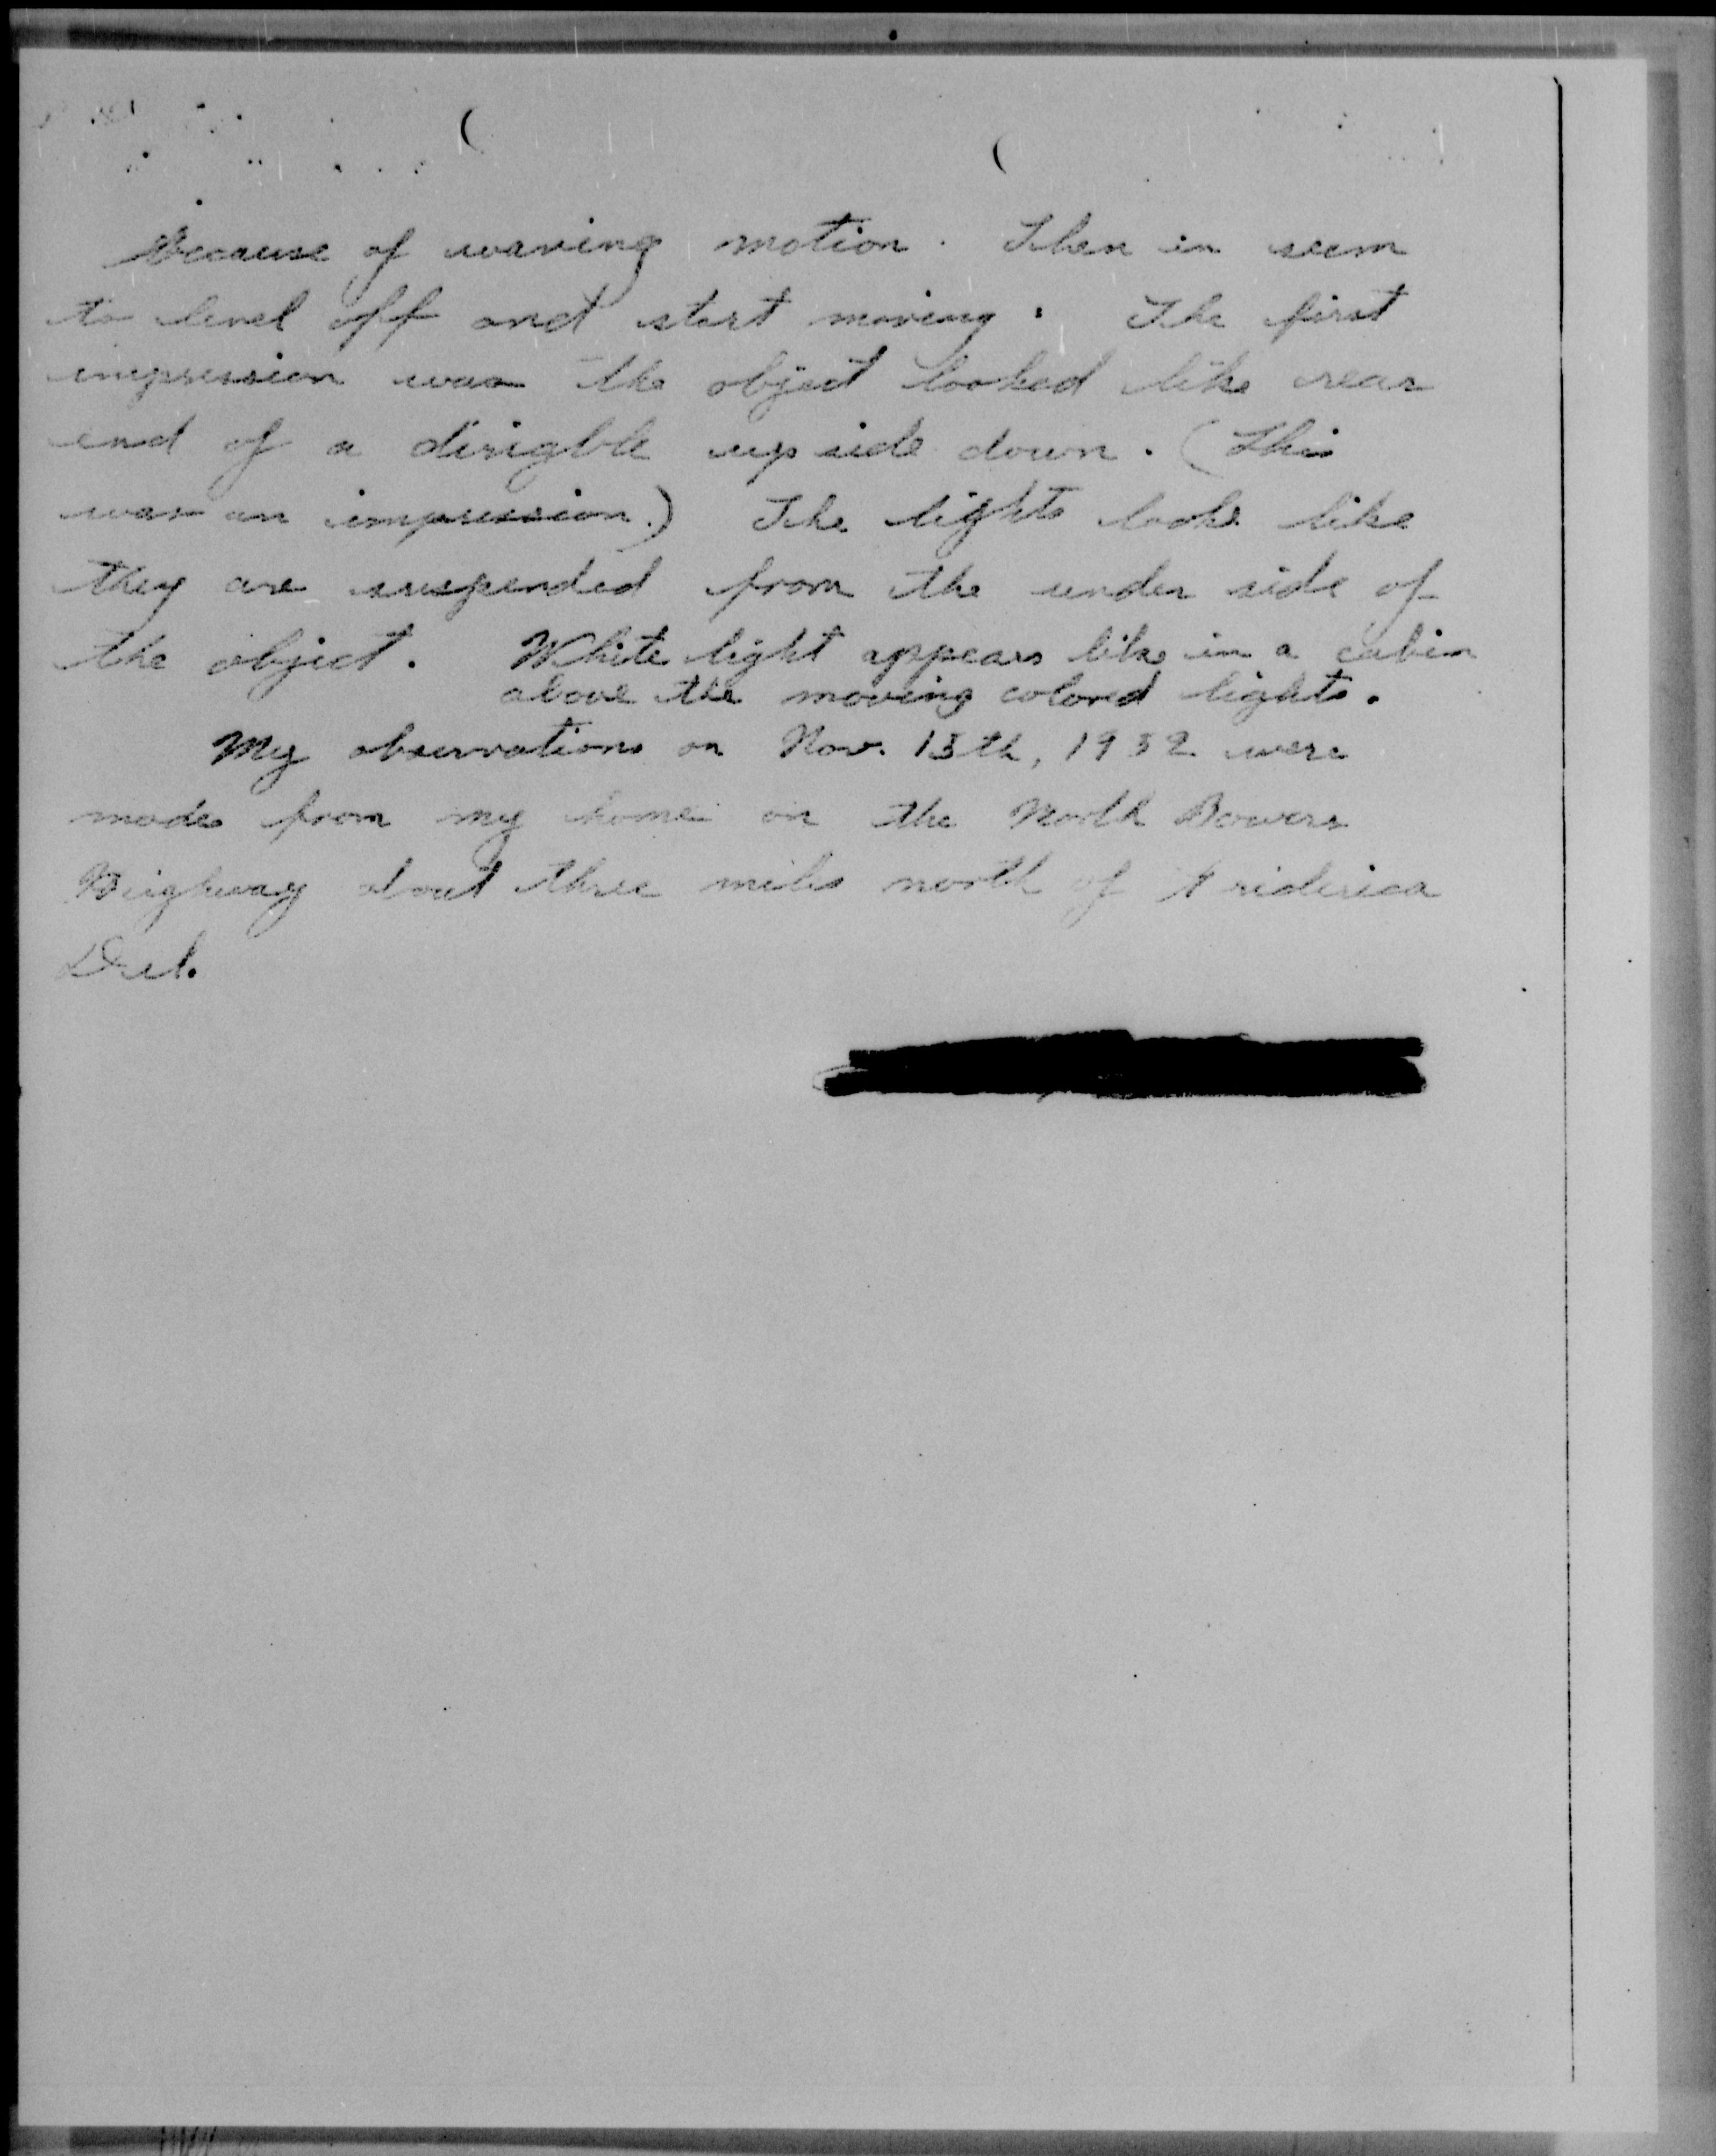 because of waving motion. Then in seem
to level off and start moving. The first
impression was the object looked like rear
end of a dirigble up side down. (This
was an impression.) The lights looks like
they are suspended from the under side of
the object. White light appears like in a cabin
above the moving colored lights.
My observations on Nov. 15th, 1952 were
made from my home on the North Bowers
Highway about three miles north of Friderica
Del.